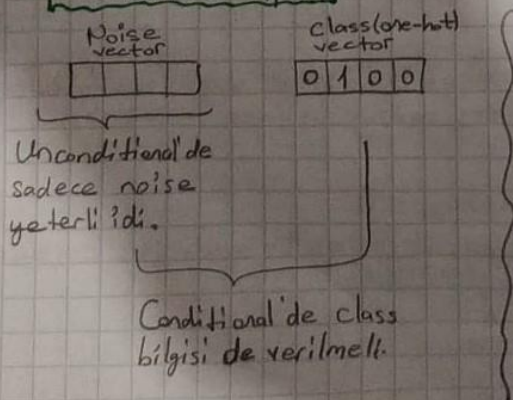 Noise
vector
Class(one-hot)
vector
0 1 0 0
Unconditional'de
sadece noise
yeterli idi.
Conditional'de class
bilgisi de verilmeli.